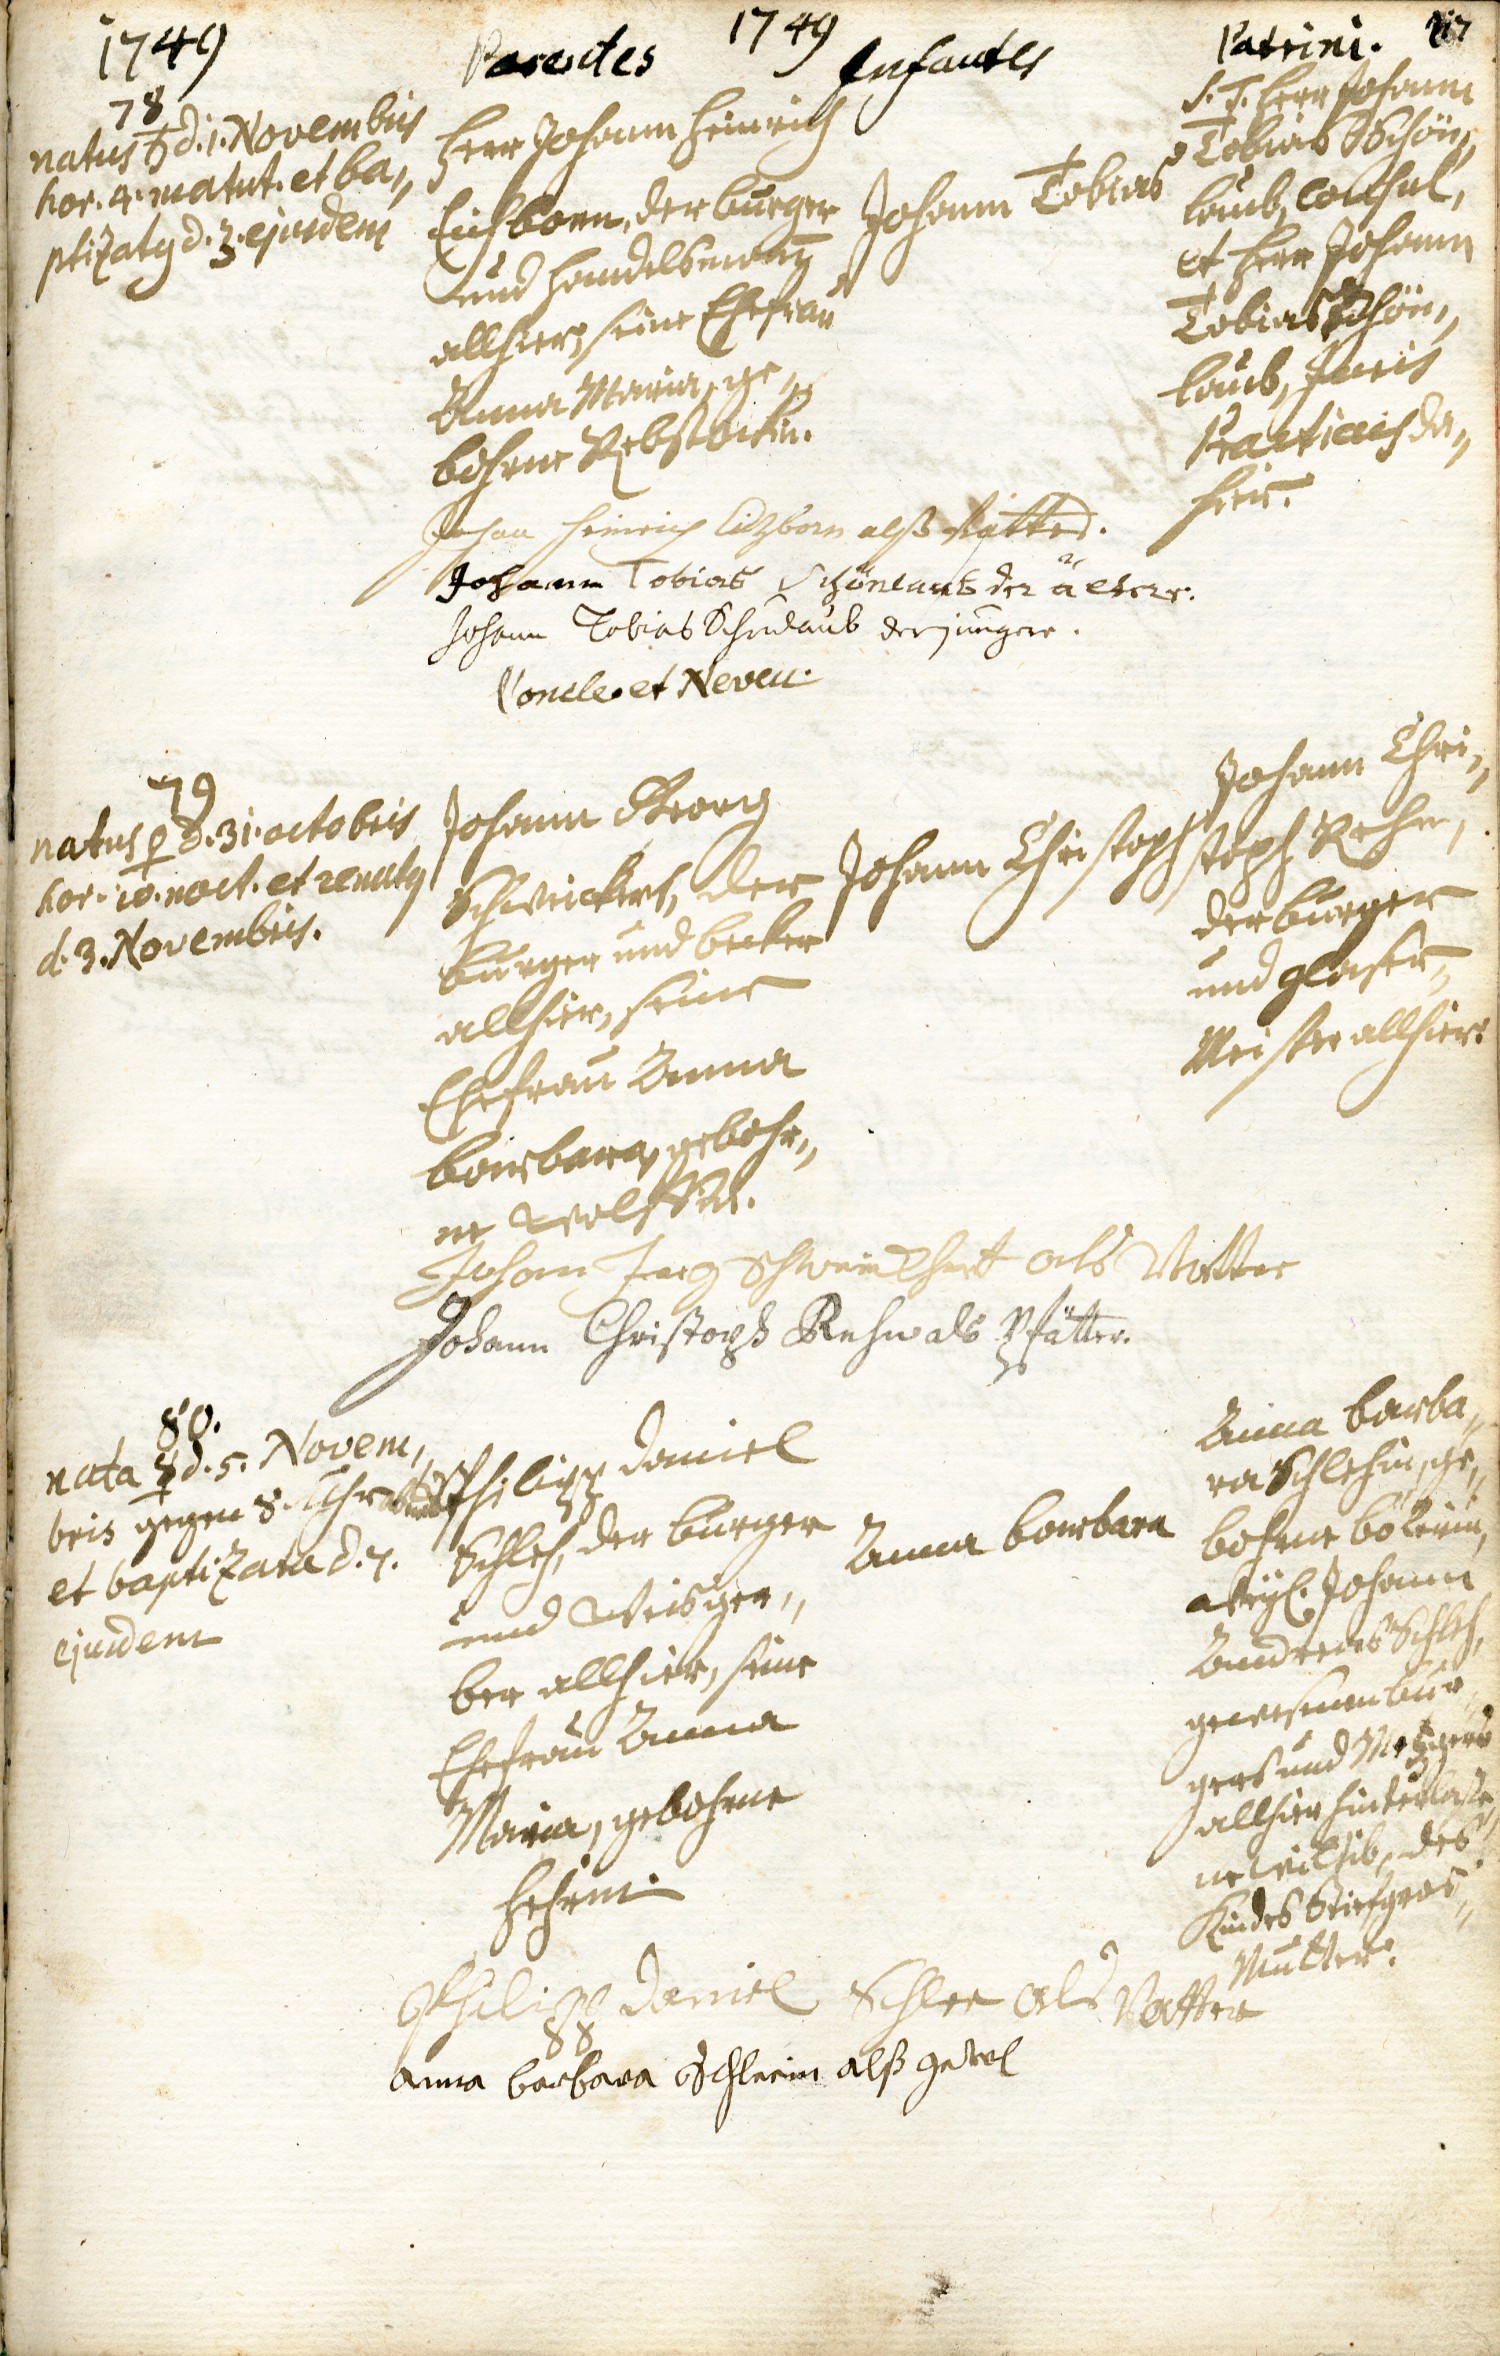 1749
Parentes
1749
Infantes
Patrini.
78
natus ♄ d. 1. Novembris
hor. 4. matut. et ba„
ptizatq d. 3. ejusdem
Herr Johann Heinrich
Eichborn, der burger
und handelsmann
allhier, seine Ehefrau
Anna Maria, ge„
bohrne Rebstöckin.
Johann Tobias
S. T. Herr Johann
Tobias Schön„
laub, Consul,
et Herr Johann
Tobias Schön„
laub, Juris
Practicus da„
hier.
Johan Heinrich Eichborn alß Vatter.
Johann Tobias Schönlaub der ältere.
Johann Tobias Schönlaub der jüngere.
l'oncle et Neveu.
79
natus ♀ d. 31. octobris
hor. 10. noct. et renatq
d. 3. Novembris.
Johann Georg
Schweickert, der
burger und becker
allhier, seine
Ehefrau Anna
barbara, gebohr„
ne Wolffin.
Johann Christoph
Johann Chri„
stoph Rehm,
der burger
und glaser„
Meister allhier.
Johan Jerg Schweickhert als Vatter
Johann Christoph Rehm als Pfätter.
80.
nata ☿ d. 5. Novem„
bris gegen 8. Uhr
et baptizata d. 7.
ejusdem
Philipp Daniel
Schleh, der burger
und Weisger„
ber allhier, seine
Ehefrau Anna
Maria, gebohrne
Anna barbara
Anna barba„
ra Schlehin, ge„
bohrne
weyl. Johann
Andreas Schleh,
gewesenen bur„
gers und Metzgers
allhier hinterlaße„
ne Wittib, des
Kindes Stiefgros„
Mutter.
Philipp Daniel Schlee als Vatter
anna barbara Schleein alß getel